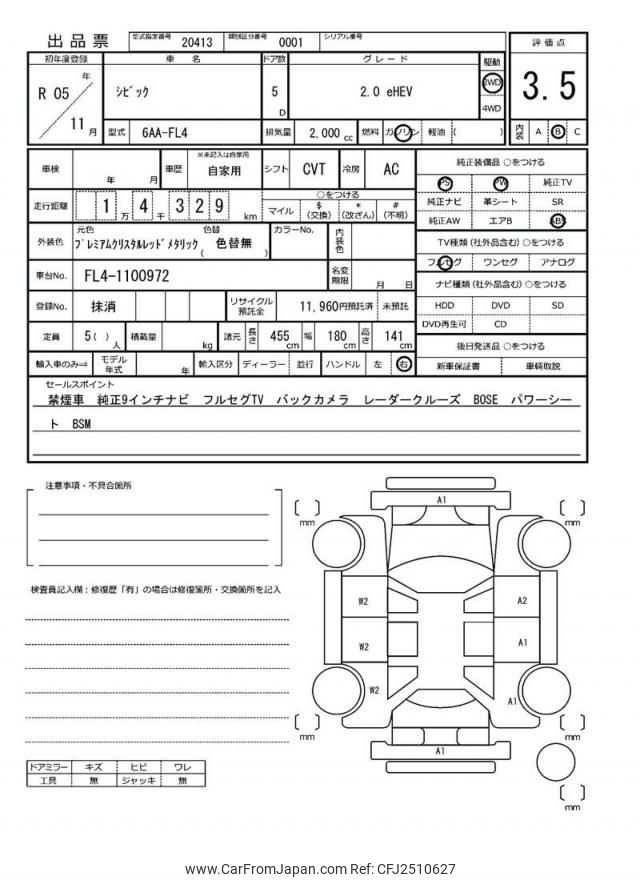 出品票 型式指定番号 20413 類別区分番号 0001 シリアル番号
評価点
3.5
内装 A B C
初年度登録 車名 ドア数 グレード 駆動
R 05 年 11 月 シビック 5 D 2.0 eHEV 2WD 4WD
型式 6AA-FL4 排気量 2,000 cc 燃料 ガソリン 軽油 ( )
車検 年 月 車歴 ※未記入は自家用 自家用 シフト CVT 冷房 AC
走行距離 1 万 4 千 3 2 9 km ○をつける
マイル $ (交換) * (改ざん) # (不明)
外装色 元色 プレミアムクリスタルレッドメタリック 色替 ( 色替無 ) カラーNo. 内装色
車台No. FL4-1100972 名変期限 月 日
登録No. 抹消 リサイクル預託金 11,960円預託済 未預託
定員 5( ) 人 積載量 kg 諸元 長さ 455 cm 幅 180 cm 高さ 141 cm
輸入車のみ⇒ モデル年式 年 輸入区分 ディーラー 並行 ハンドル 左 右
純正装備品 ○をつける
PS PW 純正TV
純正ナビ 革シート SR
純正AW エアB ABS
TV種類 (社外品含む) ○をつける
フルセグ ワンセグ アナログ
ナビ種類 (社外品含む) ○をつける
HDD DVD SD
DVD再生可 CD
後日発送品 ○をつける
新車保証書 車輌取説
セールスポイント
禁煙車 純正9インチナビ フルセグTV バックカメラ レーダークルーズ BOSE パワーシー
ト BSM
注意事項・不具合箇所
検査員記入欄：修復歴「有」の場合は修復箇所・交換箇所を記入
ドアミラー キズ ヒビ ワレ
工具 無 ジャッキ 無
A1
mm mm
W2 A2
W2 A1
W2 A1
mm mm
A1
mm
www.CarFromJapan.com Ref: CFJ2510627